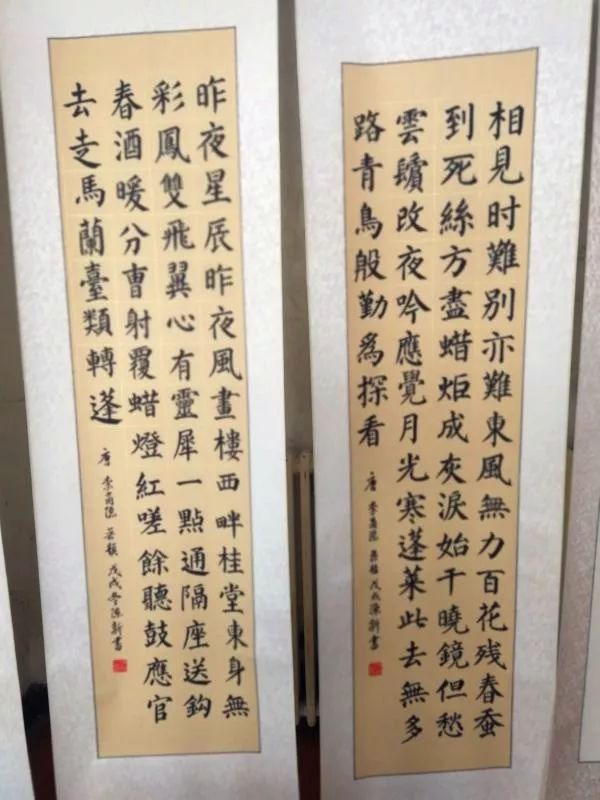 相見时難別亦難東風無力百花残春蚕
到死絲方盡蜡炬成灰淚始干曉鏡但愁
雲鬢改夜吟應覺月光寒蓬萊此去無多
路青鳥殷勤爲探看
唐 李商隐 無題 戊戌陳新書
昨夜星辰昨夜風畫樓西畔桂堂東身無
彩鳳雙飛翼心有靈犀一點通隔座送鈎
春酒暖分曹射覆蜡燈紅嗟餘聽鼓應官
去走馬蘭臺類轉蓬
唐 李商隐 無題 戊戌冬陳新書